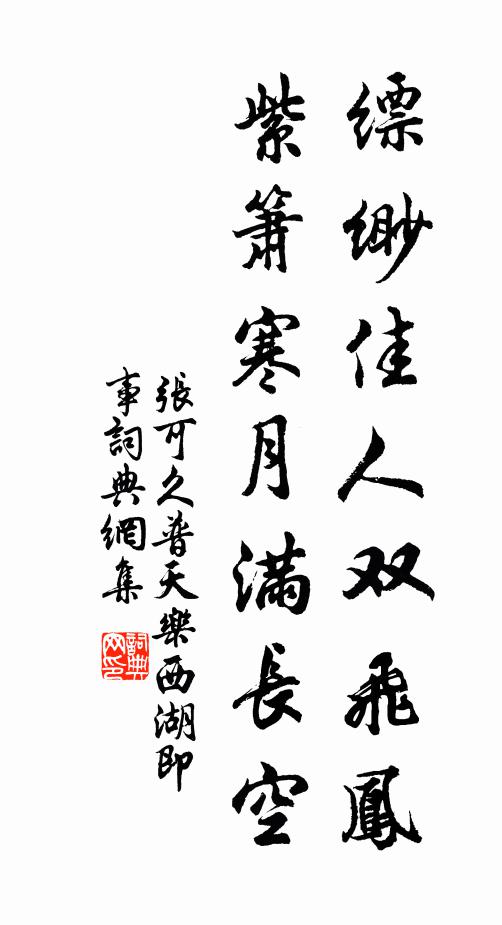 缥缈佳人双飛鳳
紫簫寒月滿長空
張可久普天樂西湖即
事詞典網集
詞典网印